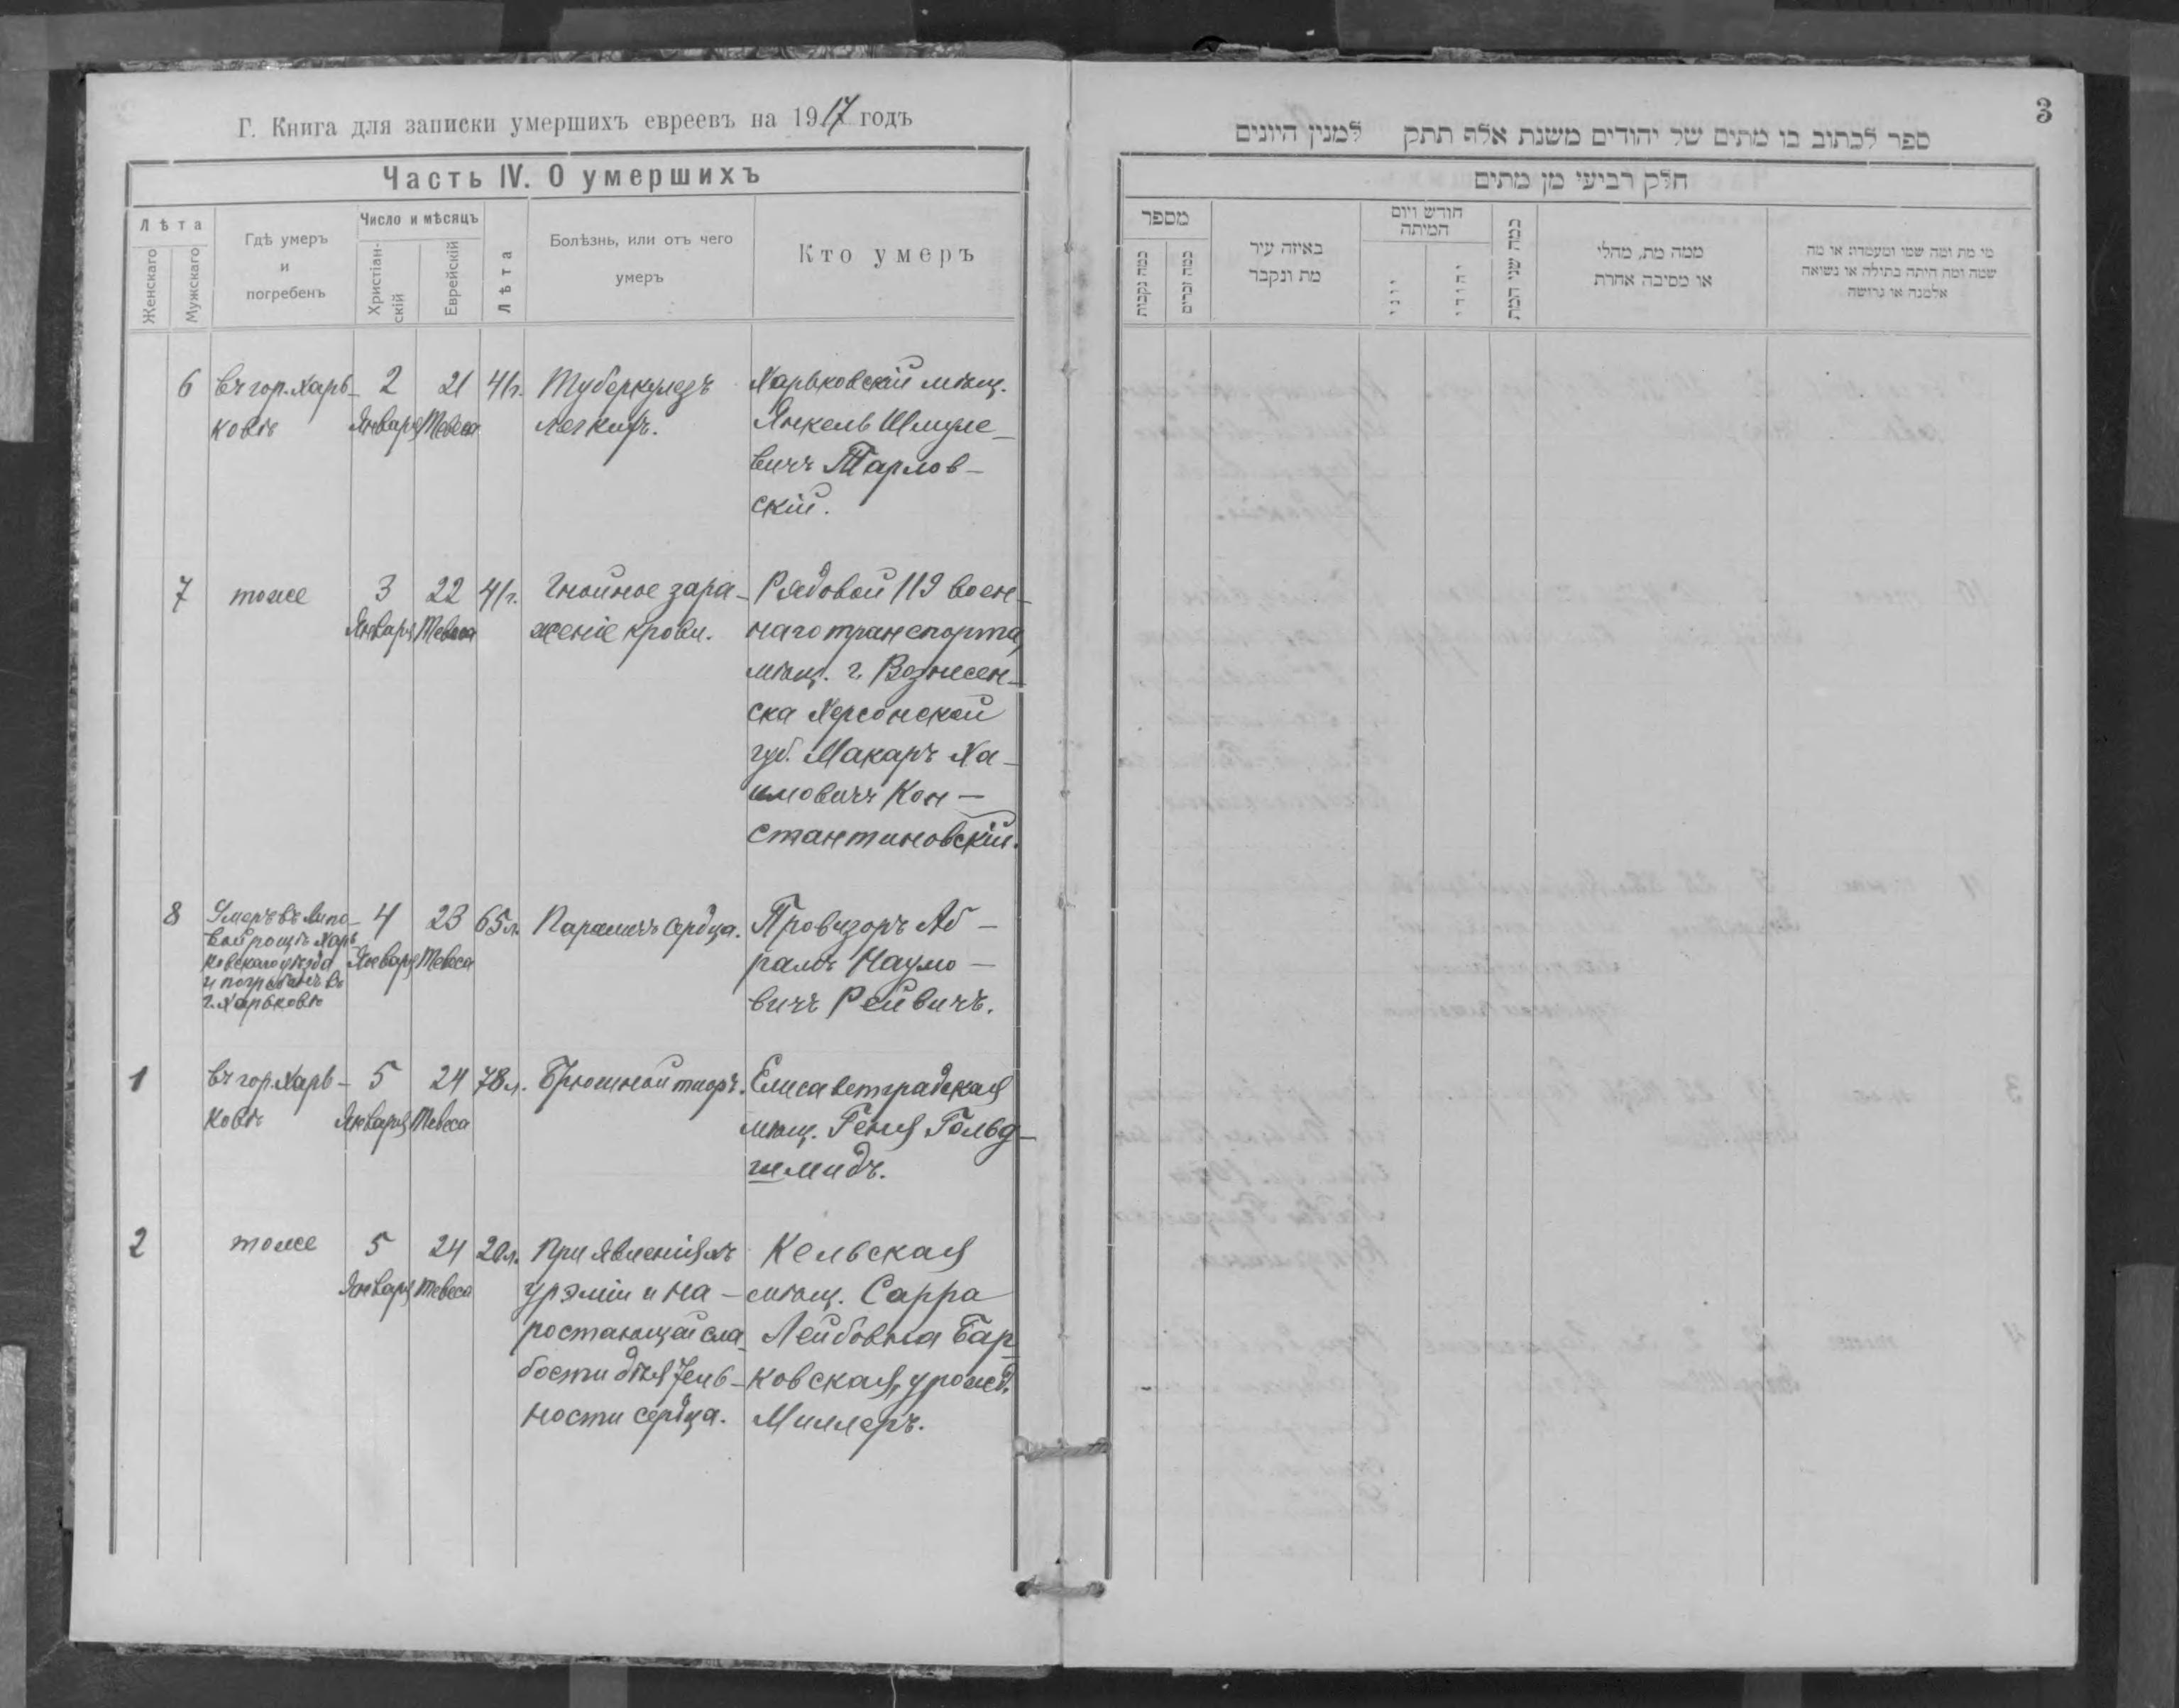 Г. Книга для записки умершихъ евреевъ на 1917 годъ
Часть IV. О умершихъ
Лѣта
Женскаго
Мужскаго
Гдѣ умеръ
и
погребенъ
Число и мѣсяцъ
Христіан-
скій
Еврейскій
Лѣта
Болѣзнь, или отъ чего
умеръ
Кто умеръ
6
въ гор. Харь-
ковѣ
2
Января
21
Тевеса
41 г.
Туберкулезъ
легкихъ.
Харьковскій мѣщ.
Янкель Шмуле-
вичъ Тарлов-
скій.
7
тоже
3
Января
22
Тевеса
41 г.
Гнойное зара-
женіе крови.
Рядовой 119 воен-
наго транспорта,
мѣщ. г. Вознесен-
ска Херсонской
губ. Макаръ Ха-
имовичъ Кон-
стантиновскій.
8
Умеръ въ Липо-
вой рощѣ Харь-
ковскаго уѣзда
и погребенъ въ
г. Харьковѣ
4
Января
23
Тевеса
65 л.
Параличъ сердца.
Провизоръ Аб-
рамъ Наумо-
вичъ Рейвичъ.
1
въ гор. Харь-
ковѣ
5
Января
24
Тевеса
78 л.
Брюшной тифъ.
Елисаветградская
мѣщ. Геня Гольд-
шмидъ.
2
тоже
5
Января
24
Тевеса
20 л.
При явленіяхъ
урэміи и на-
ростающей сла-
бости дѣятель-
ности сердца.
Кельская
мѣщ. Сарра
Лейбовна Бар-
ковская, урожд.
Миллеръ.
3
ספר לכתוב בו מתים של יהודים משנת אלף תתק למנין היונים
חלק רביעי מן מתים
מספר
כמה נקבות
כמה זכרים
באיזה עיר
מת ונקבר
חודש ויום
המיתה
יוני
יהודי
כמה שני המת
ממה מת, מחלי
או מסיבה אחרת
מי מת ומה שמו ומעמדו או מה
שמה ומה היתה בתולה או נשואה
אלמנה או גרושה